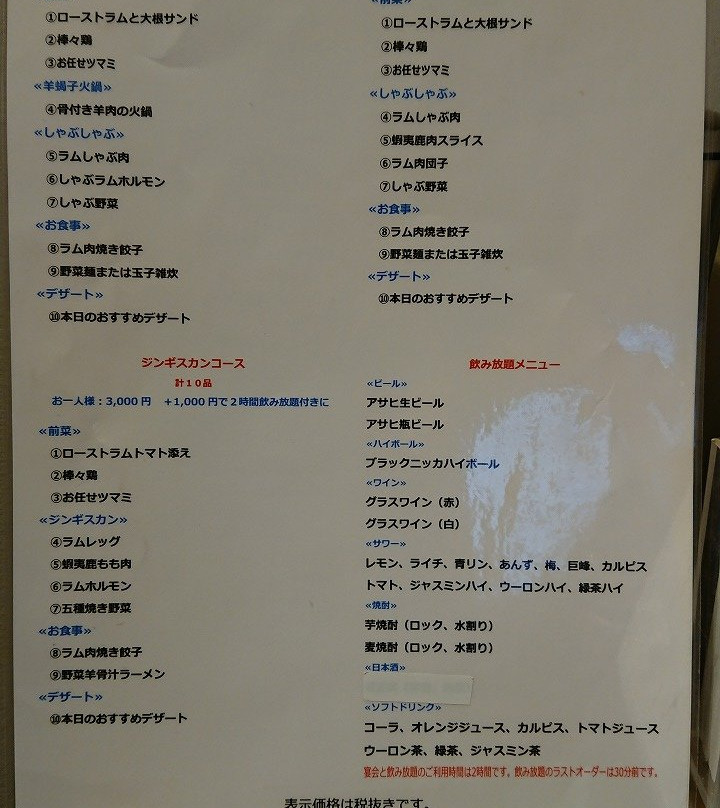 ①ローストラムと大根サンド
②棒々鶏
③お任せツマミ
≪羊蝎子火鍋≫
④骨付き羊肉の火鍋
≪しゃぶしゃぶ≫
⑤ラムしゃぶ肉
⑥しゃぶラムホルモン
⑦しゃぶ野菜
≪お食事≫
⑧ラム肉焼き餃子
⑨野菜麺または玉子雑炊
≪デザート≫
⑩本日のおすすめデザート
①ローストラムと大根サンド
②棒々鶏
③お任せツマミ
≪しゃぶしゃぶ≫
④ラムしゃぶ肉
⑤蝦夷鹿肉スライス
⑥ラム肉団子
⑦しゃぶ野菜
≪お食事≫
⑧ラム肉焼き餃子
⑨野菜麺または玉子雑炊
≪デザート≫
⑩本日のおすすめデザート
ジンギスカンコース
計10品
お一人様：3,000円　＋1,000円で2時間飲み放題付きに
≪前菜≫
①ローストラムトマト添え
②棒々鶏
③お任せツマミ
≪ジンギスカン≫
④ラムレッグ
⑤蝦夷鹿もも肉
⑥ラムホルモン
⑦五種焼き野菜
≪お食事≫
⑧ラム肉焼き餃子
⑨野菜羊骨汁ラーメン
≪デザート≫
⑩本日のおすすめデザート
飲み放題メニュー
≪ビール≫
アサヒ生ビール
アサヒ瓶ビール
≪ハイボール≫
ブラックニッカハイボール
≪ワイン≫
グラスワイン（赤）
グラスワイン（白）
≪サワー≫
レモン、ライチ、青リン、あんず、梅、巨峰、カルピス
トマト、ジャスミンハイ、ウーロンハイ、緑茶ハイ
≪焼酎≫
芋焼酎（ロック、水割り）
麦焼酎（ロック、水割り）
≪日本酒≫
≪ソフトドリンク≫
コーラ、オレンジジュース、カルピス、トマトジュース
ウーロン茶、緑茶、ジャスミン茶
宴会と飲み放題のご利用時間は2時間です。飲み放題のラストオーダーは30分前です。
表示価格は税抜きです。